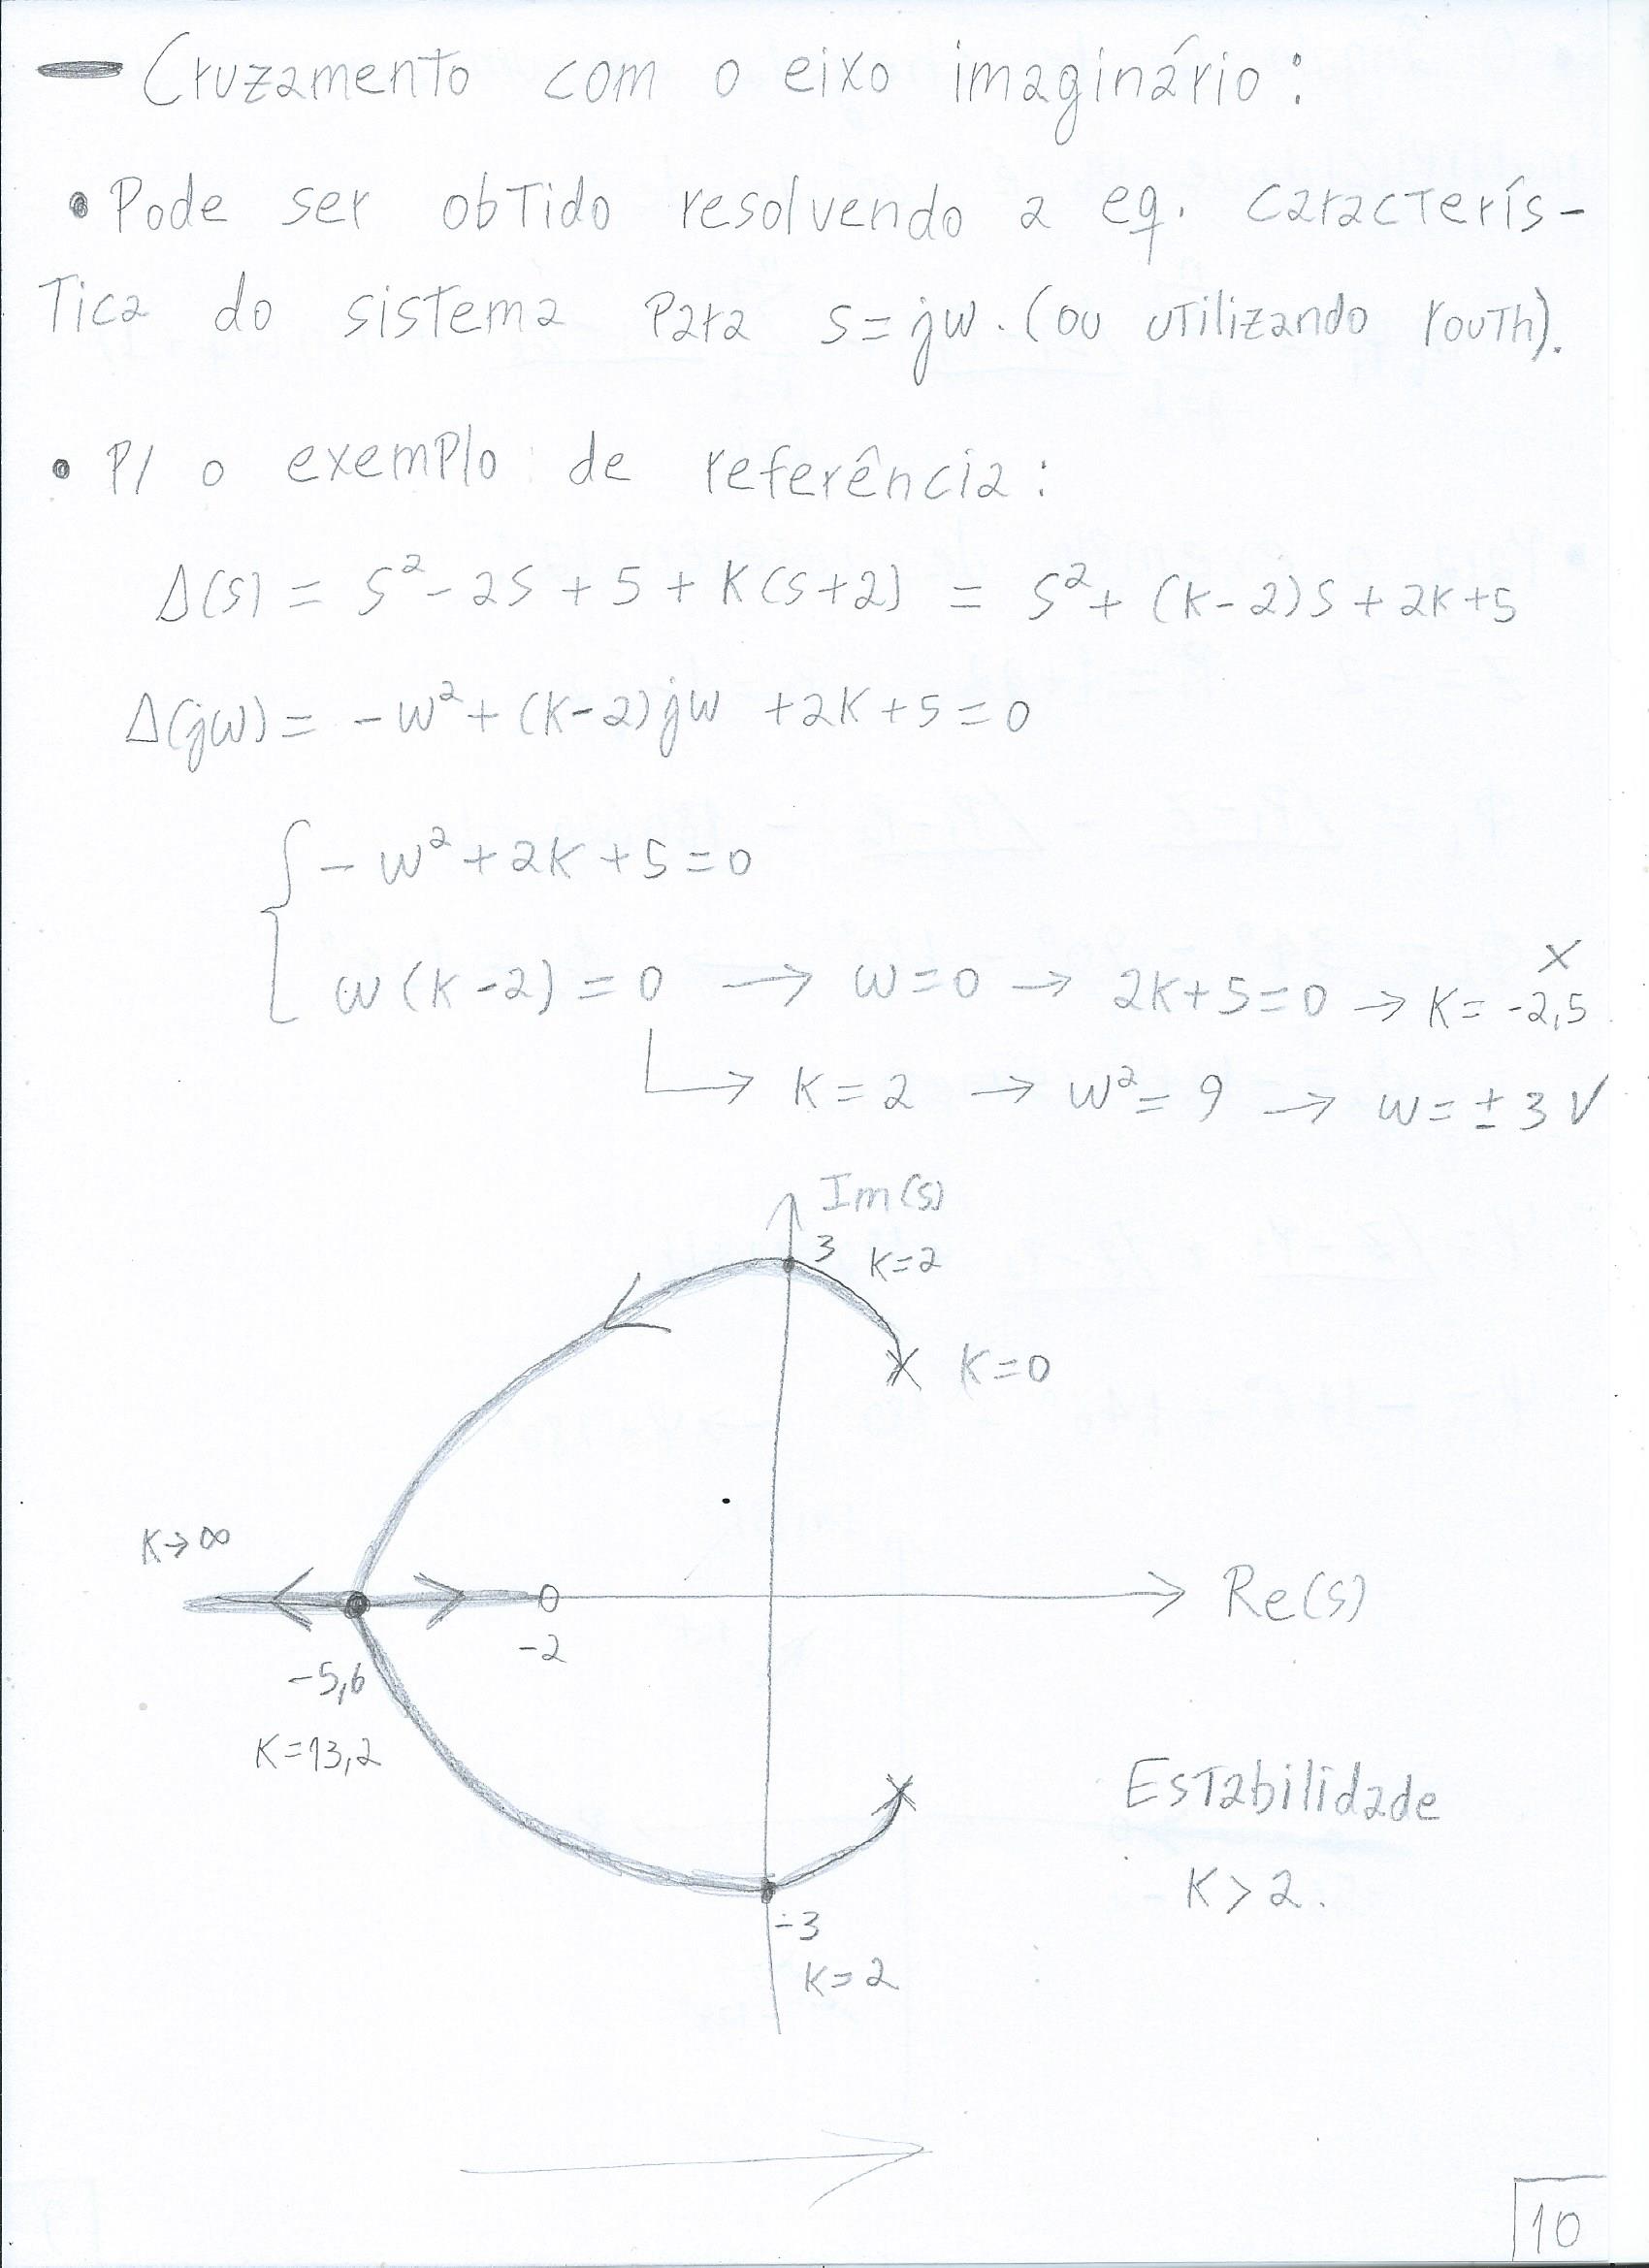 — Cruzamento com o eixo imaginário:
• Pode ser obtido resolvendo a eq. caracterís-
tica do sistema para s=jw. (ou utilizando routh).
• P/ o exemplo de referência:
Δ(s) = s² - 2s + 5 + K(s+2) = s² + (K-2)s + 2K+5
Δ(jw) = -w² + (K-2)jw + 2K + 5 = 0
{ -w² + 2K + 5 = 0
w(K-2) = 0 → w=0 → 2K+5=0 → K=-2,5 X
↳ K=2 → w²=9 → w=±3 √
Im(s)
3 K=2
X K=0
K→∞
Re(s)
-2
-5,6
K=13,2
Estabilidade
K>2.
-3
K=2
10